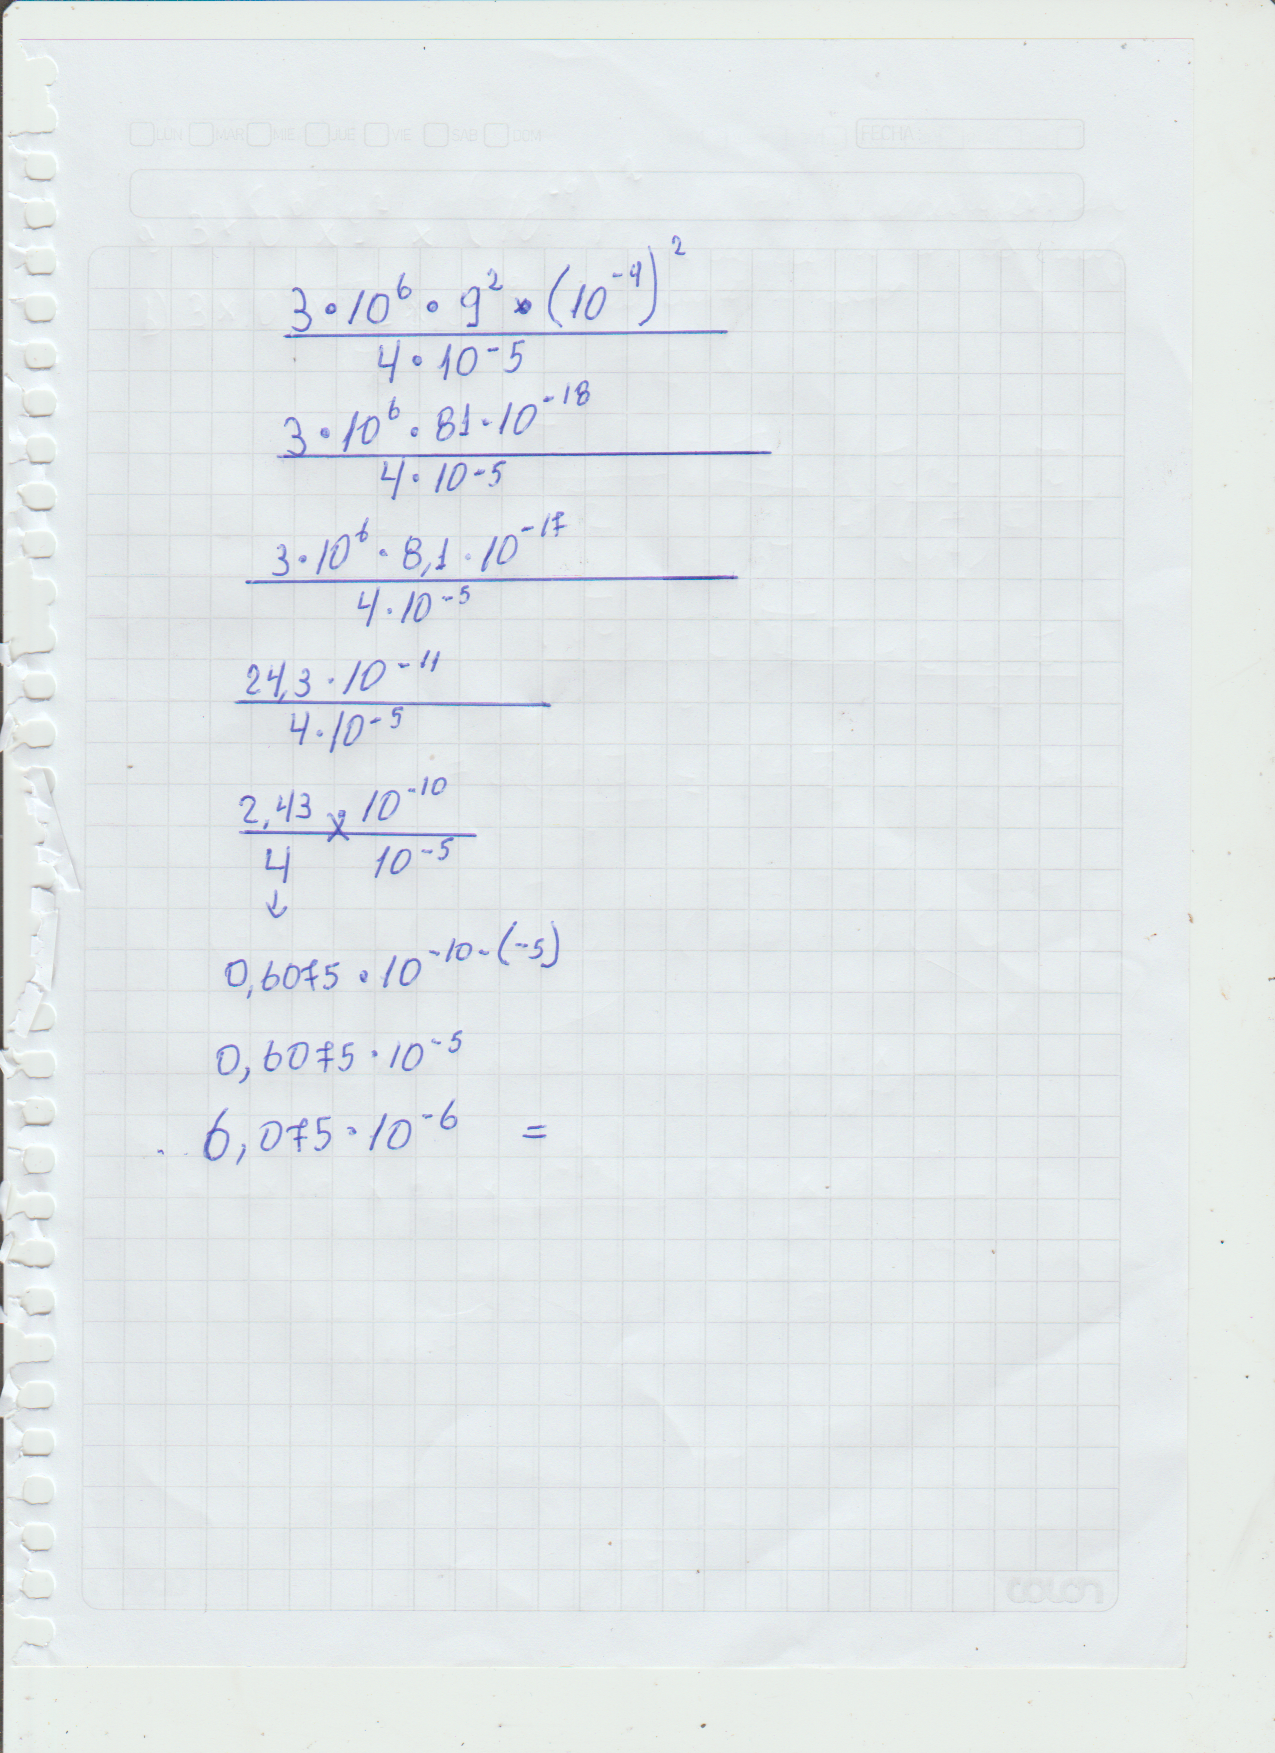 LUN MAR MIE JUE VIE SAB DOM FECHA
3·10⁶·9²·(10⁻⁹)²
4·10⁻⁵
3·10⁶·81·10⁻¹⁸
4·10⁻⁵
3·10⁶·8,1·10⁻¹⁷
4·10⁻⁵
24,3·10⁻¹¹
4·10⁻⁵
2,43 x 10⁻¹⁰
4 10⁻⁵
↓
0,6075·10⁻¹⁰⁻⁽⁻⁵⁾
0,6075·10⁻⁵
6,075·10⁻⁶ =
colon